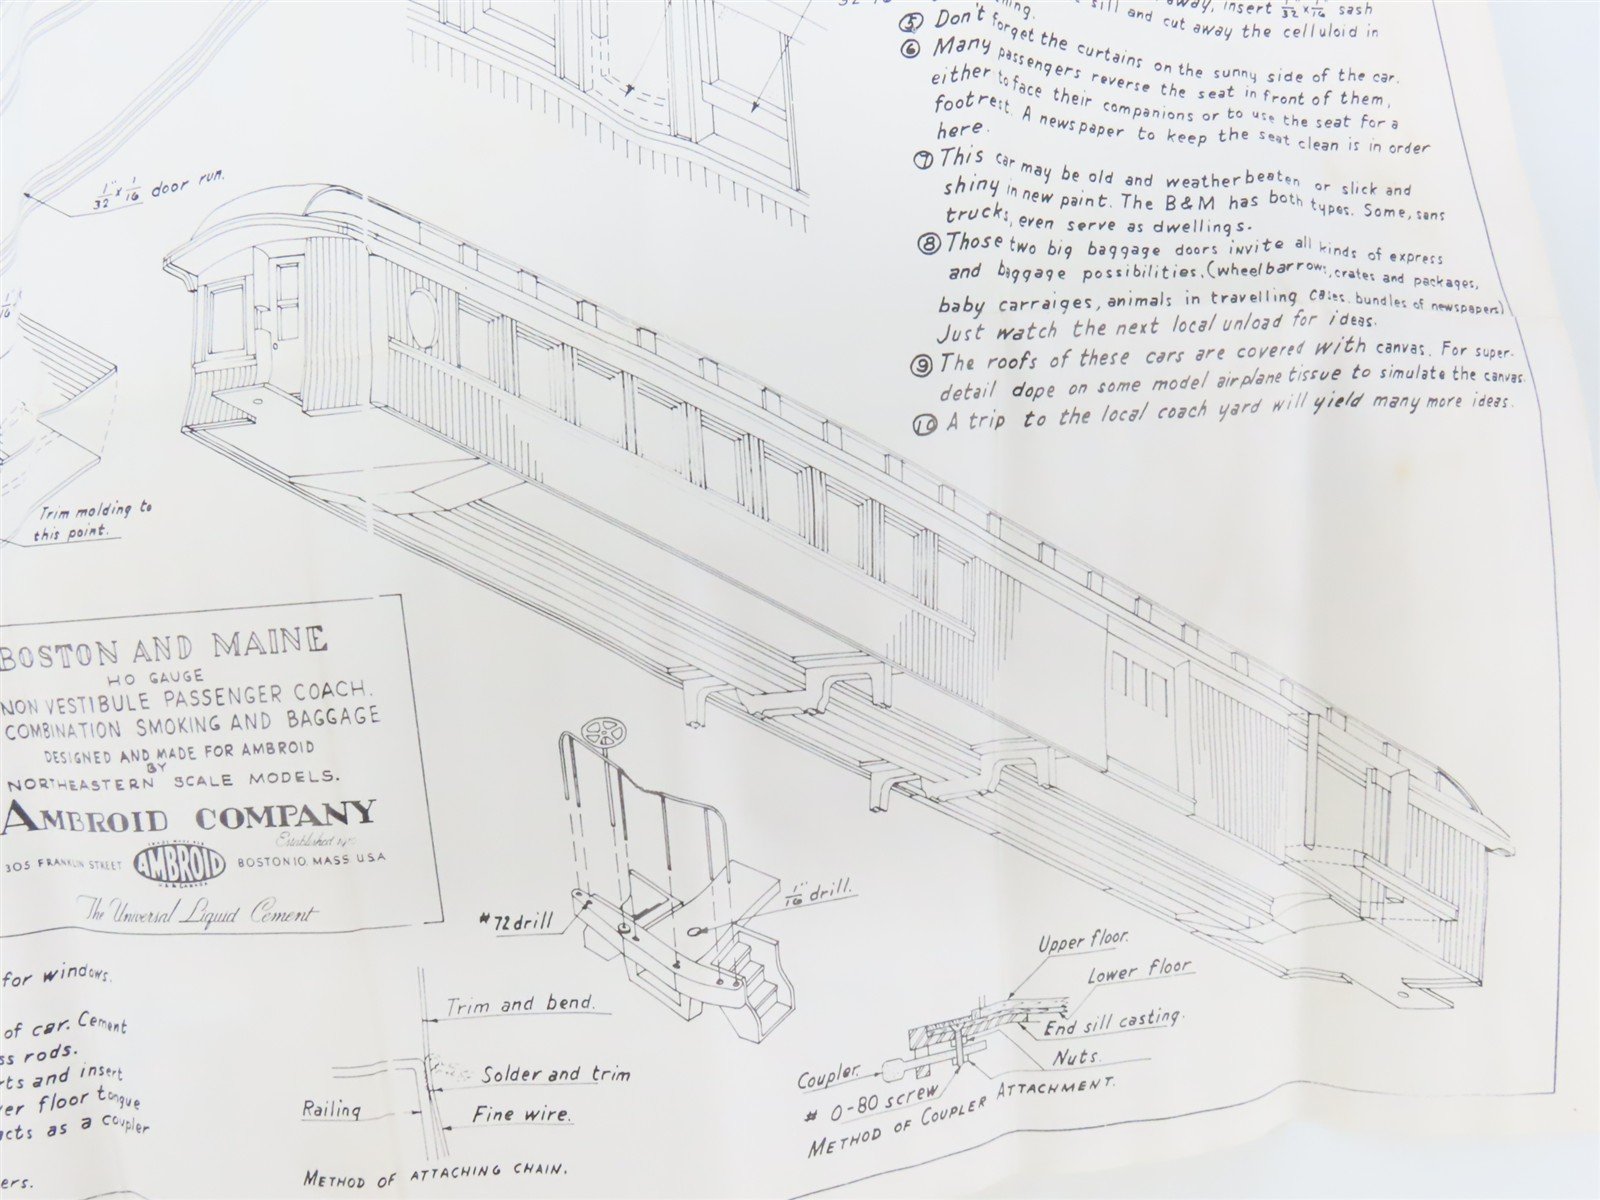 away, insert 1/32"x1/16" sash
sill and cut away the celluloid in
⑤ Don't forget the curtains on the sunny side of the car.
⑥ Many passengers reverse the seat in front of them,
either to face their companions or to use the seat for a
footrest. A newspaper to keep the seat clean is in order
here.
⑦ This car may be old and weatherbeaten or slick and
shiny in new paint. The B&M has both types. Some, sans
trucks, even serve as dwellings.
⑧ Those two big baggage doors invite all kinds of express
and baggage possibilities. (wheelbarrows, crates and packages,
baby carraiges, animals in travelling cases, bundles of newspapers)
Just watch the next local unload for ideas.
⑨ The roofs of these cars are covered with canvas. For super-
detail dope on some model airplane tissue to simulate the canvas.
⑩ A trip to the local coach yard will yield many more ideas.
1/32"x1/16 door run.
Trim molding to
this point.
BOSTON AND MAINE
HO GAUGE
NON VESTIBULE PASSENGER COACH.
COMBINATION SMOKING AND BAGGAGE
DESIGNED AND MADE FOR AMBROID
BY
NORTHEASTERN SCALE MODELS.
AMBROID COMPANY
Established
305 FRANKLIN STREET AMBROID BOSTON 10, MASS U.S.A
The Universal Liquid Cement
#72 drill
1/16" drill.
for windows.
of car. Cement
ss rods.
rts and insert
er floor tongue
acts as a coupler
ers.
Trim and bend.
Solder and trim
Railing
Fine wire.
METHOD OF ATTACHING CHAIN.
Upper floor.
Lower floor
End sill casting.
Nuts.
Coupler.
# 0-80 screw
METHOD OF COUPLER ATTACHMENT.